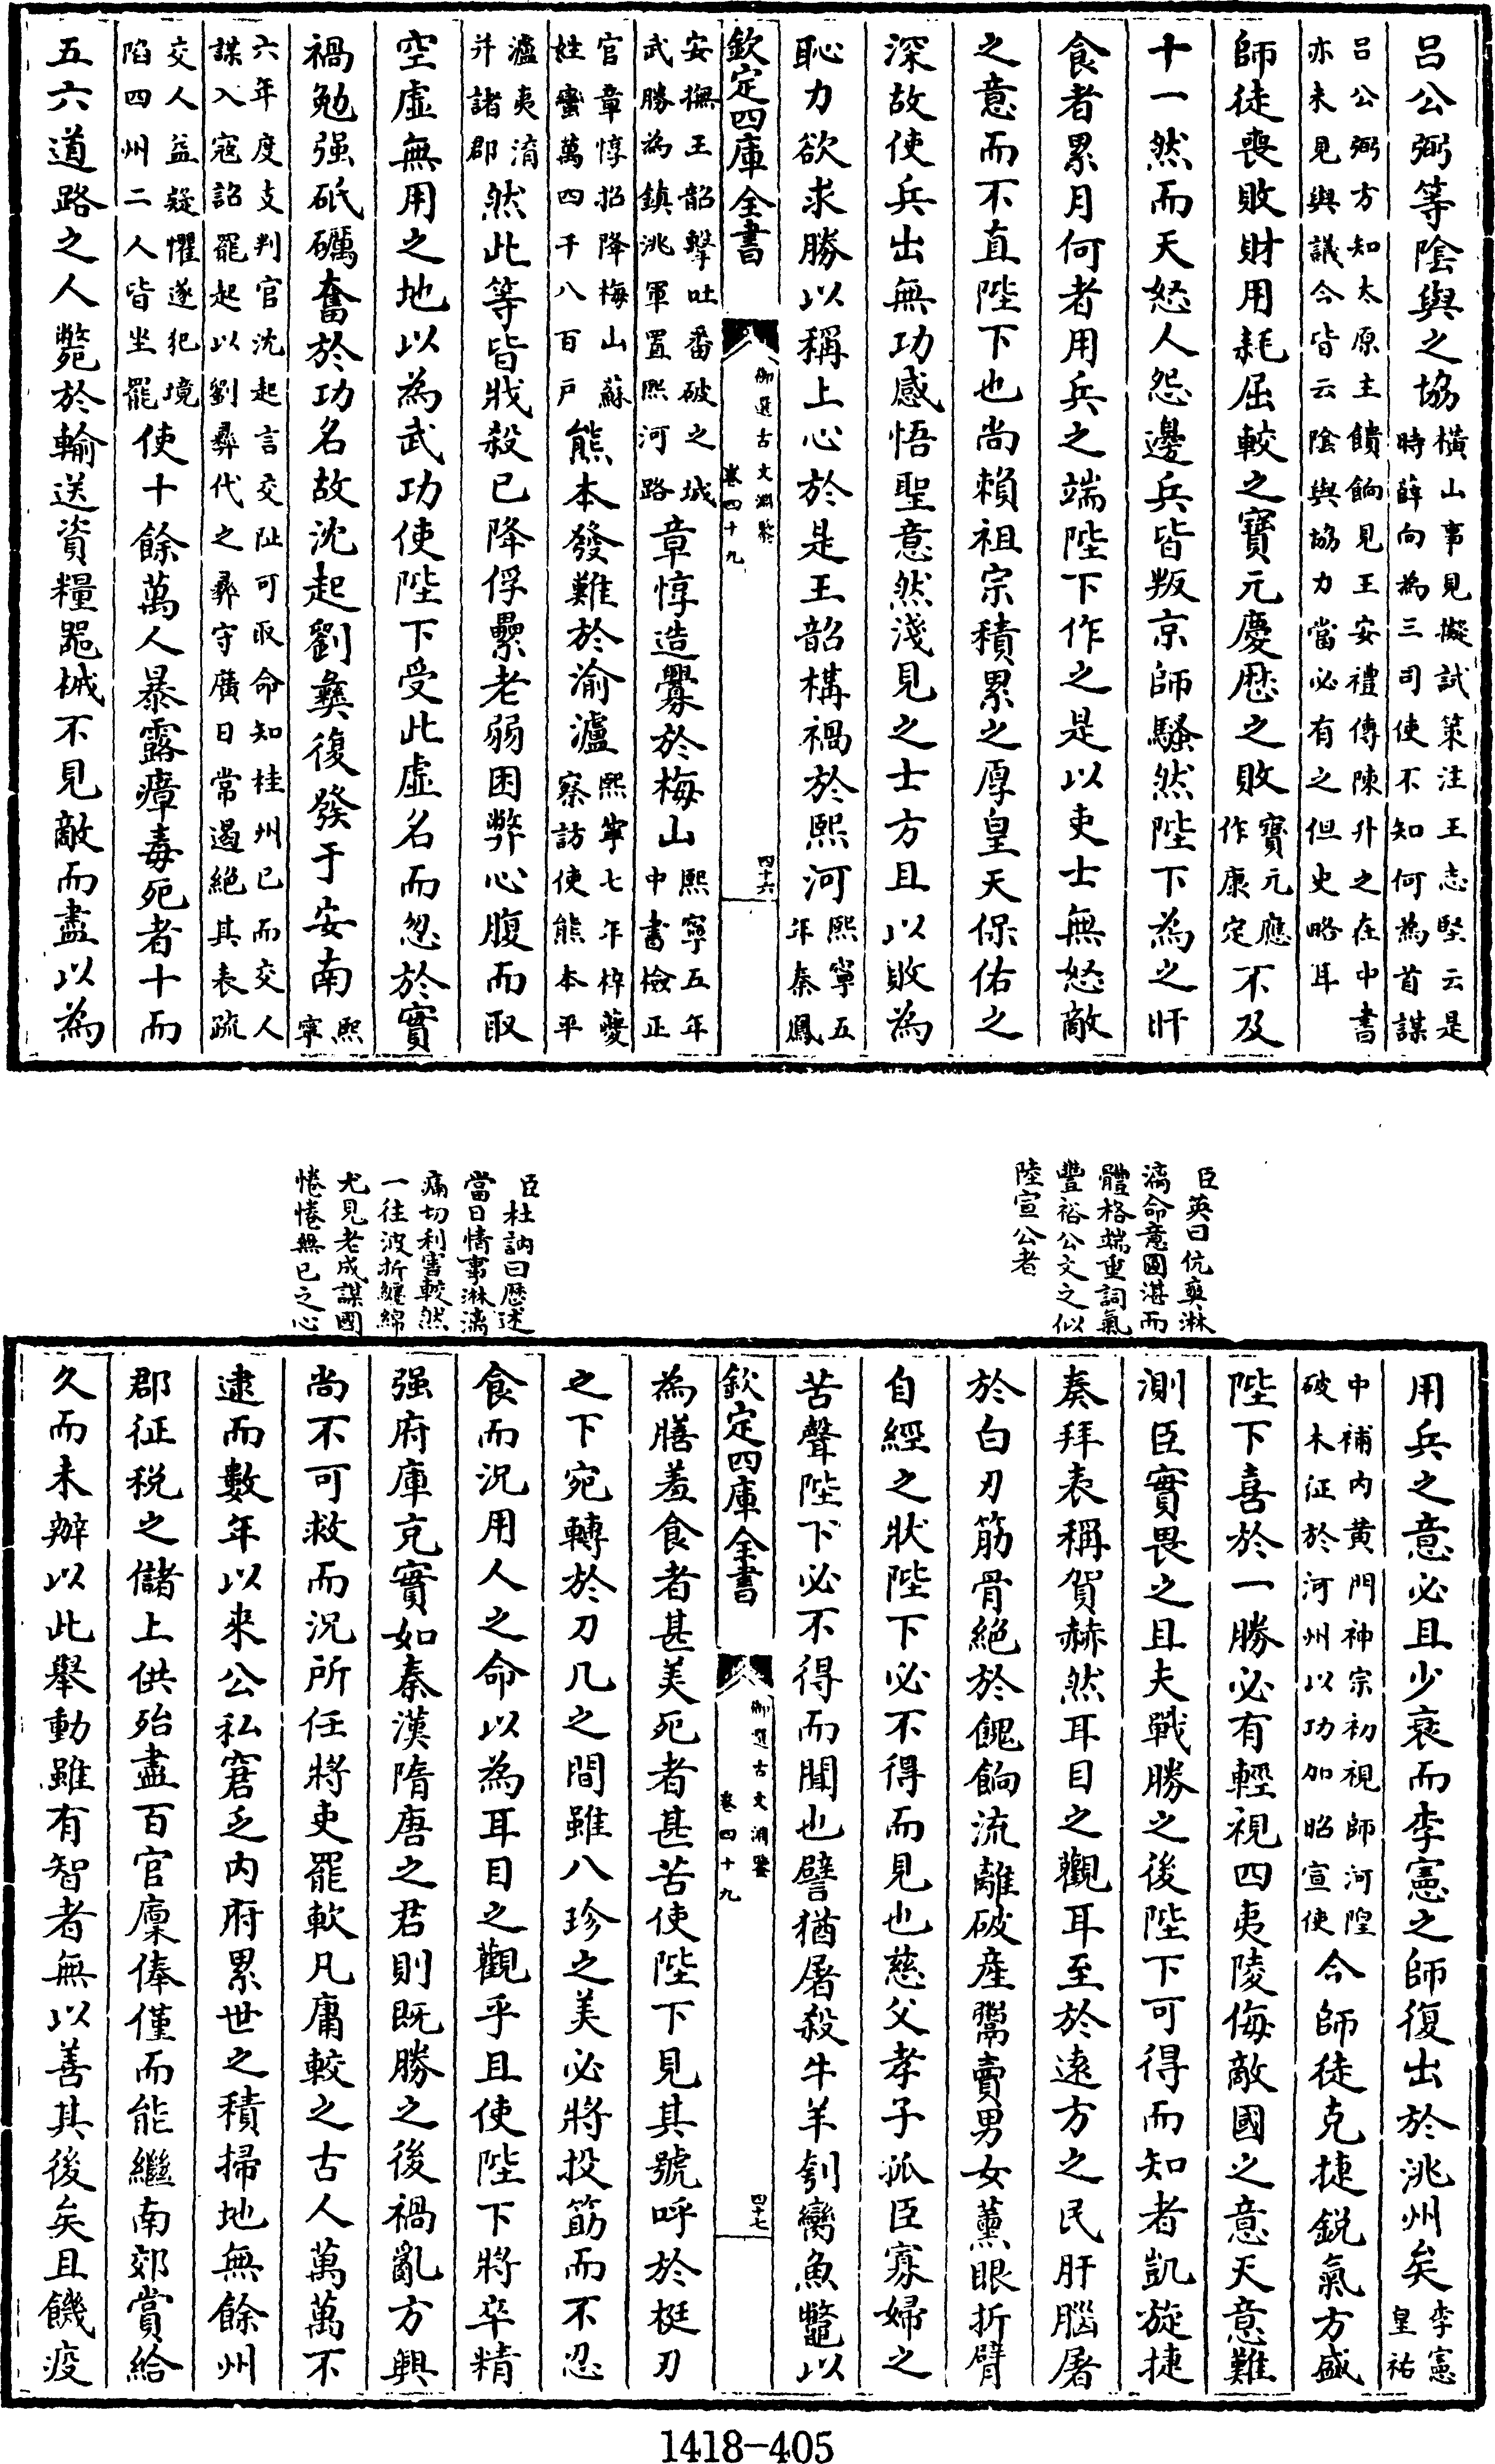 呂公弼等陰與之協橫山事見擬試策注王志堅云是
時薛向為三司使不知何為首謀
呂公弼方知太原主饋餉見王安禮傳陳升之在中書
亦未見與議今皆云陰與協力當必有之但史略耳
師徒喪敗財用耗屈較之寶元慶厯之敗寶元應
作康定不及
十一然而天怒人怨邊兵皆叛京師騷然陛下為之旰
食者累月何者用兵之端陛下作之是以吏士無怒敵
之意而不直陛下也尚賴祖宗積累之厚皇天保佑之
深故使兵出無功感悟聖意然淺見之士方且以敗為
恥力欲求勝以稱上心於是王韶構禍於熙河熙寧五
年秦鳳
欽定四庫全書
御選古文淵鑒
卷四十九
四十六
安撫王韶擊吐番破之城
武勝為鎮洮軍置熙河路章惇造釁於梅山熙寧五年
中書檢正
官章惇招降梅山蘇
姓蠻萬四千八百戶熊本發難於渝瀘熙寧七年梓夔
察訪使熊本平
瀘夷淯
井諸郡然此等皆戕殺已降俘纍老弱困弊心腹而取
空虛無用之地以為武功使陛下受此虛名而忽於實
禍勉强砥礪奮於功名故沈起劉彝復發于安南熙
寧
六年度支判官沈起言交阯可取命知桂州已而交人
謀入寇詔罷起以劉彝代之彞守廣日常遏絕其表疏
交人益疑懼遂犯境
陷四州二人皆坐罷使十餘萬人暴露瘴毒死者十而
五六道路之人斃於輸送資糧器械不見敵而盡以為
臣英曰伉爽淋
漓命意圓湛而
體格端重詞氣
豐裕公文之似
陸宣公者
臣杜訥曰歷述
當日情事淋漓
痛切利害較然
一往波折纏綿
尤見老成謀國
惓惓無已之心
用兵之意必且少衰而李憲之師復出於洮州矣李憲
皇祐
中補內黃門神宗初視師河隍
破木征於河州以功加昭宣使今師徒克捷鋭氣方盛
陛下喜於一勝必有輕視四夷陵侮敵國之意天意難
測臣實畏之且夫戰勝之後陛下可得而知者凱旋捷
奏拜表稱賀赫然耳目之觀耳至於遠方之民肝腦屠
於白刃筋骨絕於餽餉流離破產鬻賣男女薰眼折臂
自經之狀陛下必不得而見也慈父孝子孤臣寡婦之
苦聲陛下必不得而聞也譬猶屠殺牛羊刳臠魚鼈以
欽定四庫全書
御選古文淵鑒
卷四十九
四十七
為膳羞食者甚美死者甚苦使陛下見其號呼於梃刃
之下宛轉於刀几之間雖八珍之美必將投筯而不忍
食而況用人之命以為耳目之觀乎且使陛下將卒精
强府庫充實如秦漢隋唐之君則既勝之後禍亂方興
尚不可救而況所任將吏罷軟凡庸較之古人萬萬不
逮而數年以來公私窘乏內府累世之積掃地無餘州
郡征税之儲上供殆盡百官廩俸僅而能繼南郊賞給
久而未辦以此舉動雖有智者無以善其後矣且饑疫
1418-405